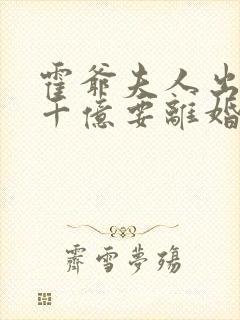 霍爺夫人出
十億要離婚
霽雪夢殤